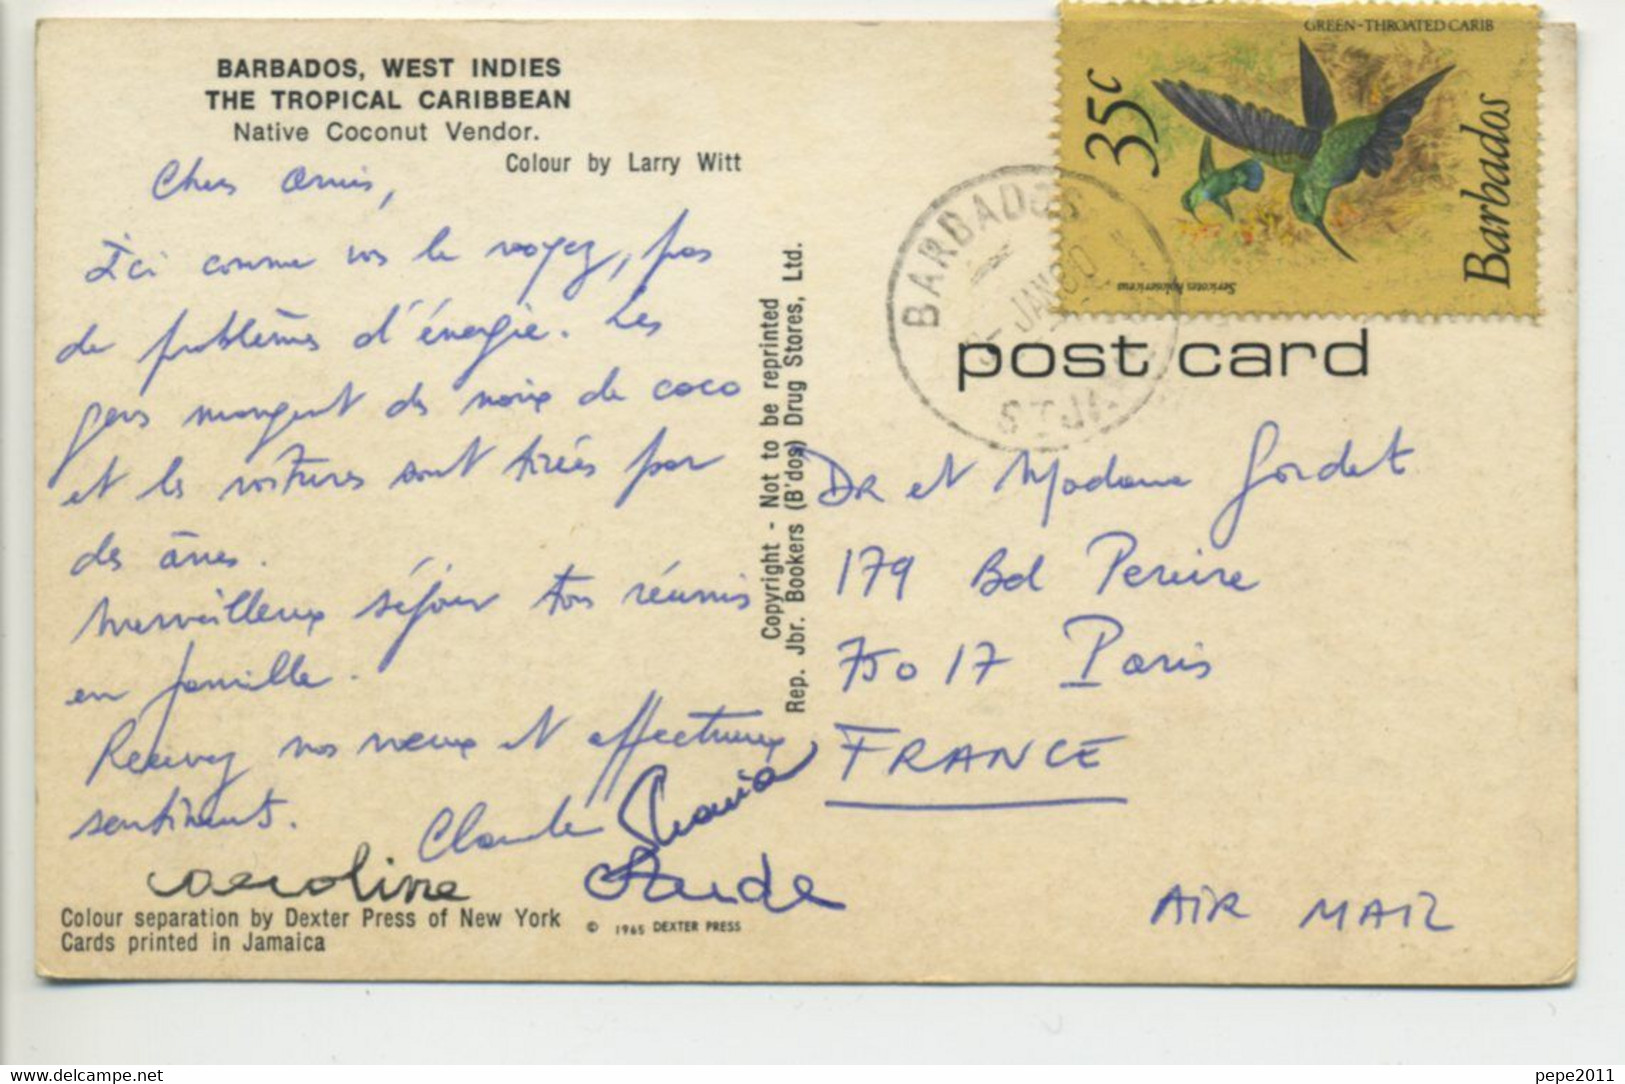 BARBADOS, WEST INDIES
THE TROPICAL CARIBBEAN
Native Coconut Vendor.
Colour by Larry Witt
Chers amis,
Ici comme vous le voyez, pas
de problèmes d'énergie. Les
gens mangent des noix de coco
et les voitures sont tirées par
des ânes.
Merveilleux séjour tous réunis
en famille.
Recevez nos voeux et affectueux
sentiments.
Claude
Caroline
Aude
Colour separation by Dexter Press of New York
Cards printed in Jamaica
© 1965 DEXTER PRESS
Copyright - Not to be reprinted
Rep. Jbr. Bookers (B'dos) Drug Stores, Ltd.
GREEN-THROATED CARIB
35c
Barbados
Sericotes holosericeus
BARBADOS
JAN 80
ST.JA
post card
DR et Madame Jordet
179 Bd Pereire
75017 Paris
FRANCE
AIR MAIL
pepe2011